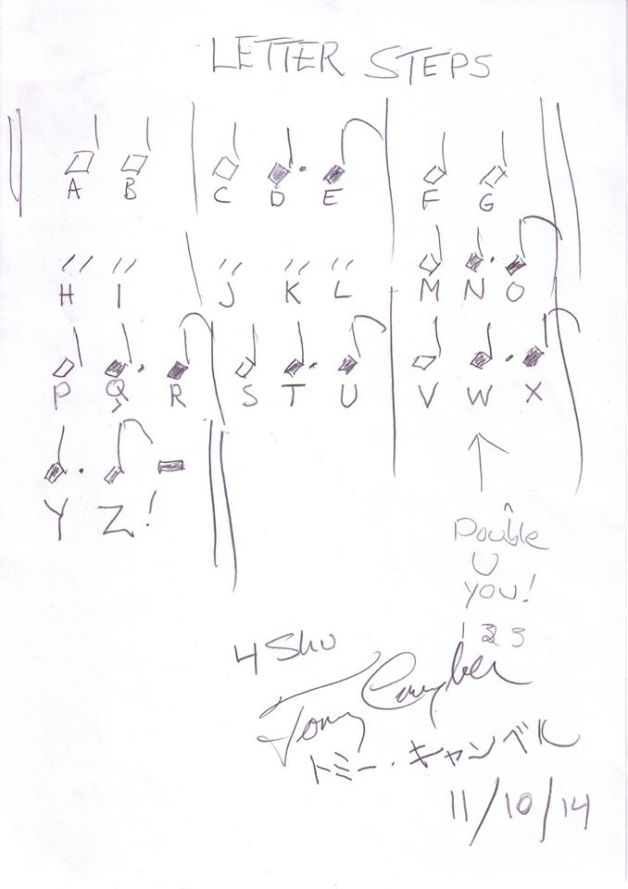 LETTER STEPS
A B C D E F G
H I J K L M N O
P Q R S T U V W X
Y Z!
Double
U
YOU!
1 2 3
4 Shu
Tommy Campbell
トミー・キャンベル
11/10/14